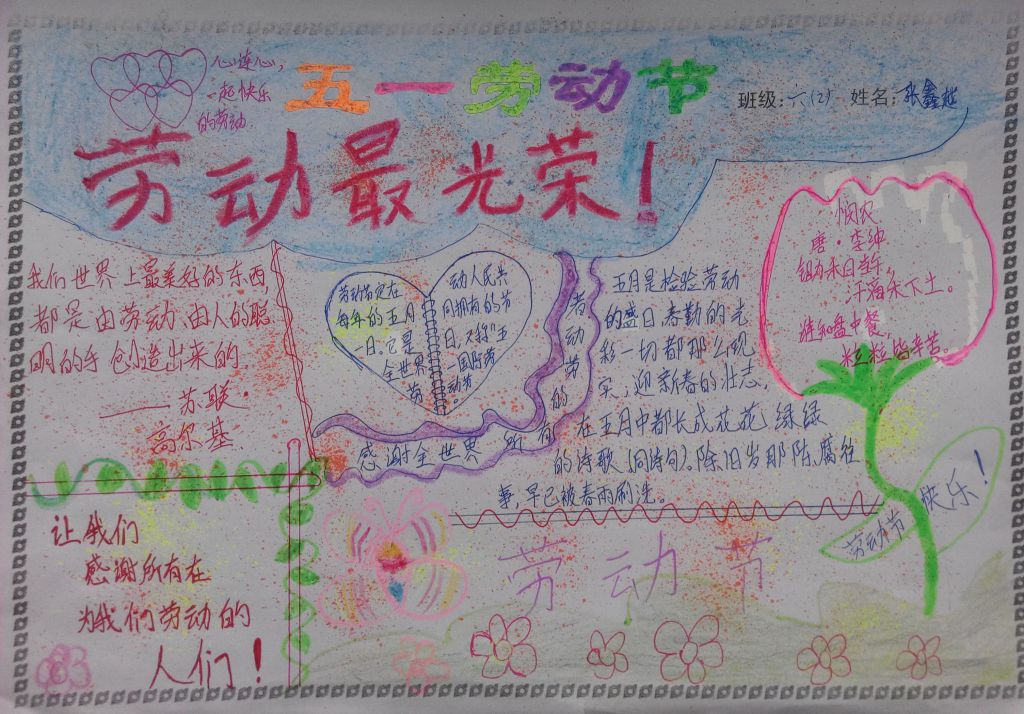 心连心，
一起快乐
的劳动
五一劳动节
班级:六(2) 姓名:张鑫越
劳动最光荣！
我们世界上最美好的东西，
都是由劳动、由人的聪
明的手创造出来的.
——苏联·
高尔基
劳动节定在
每年的五月
一日。它是
全世界
劳
动人民共
同拥有的节
日，又称"五
一国际劳
动节。
感谢全世界所有的劳动者
五月是检验劳动
的盛日.春勤的光
彩一切都那么现
实；迎新春的壮志，
在五月中都长成花花绿绿
的诗歌(同诗句).除旧岁那陈腐往
事，早已被春雨刷洗。
悯农
唐·李绅
锄禾日当午，
汗滴禾下土。
谁知盘中餐，
粒粒皆辛苦。
劳动节快乐！
让我们
感谢所有在
为我们劳动的
人们！
劳动节